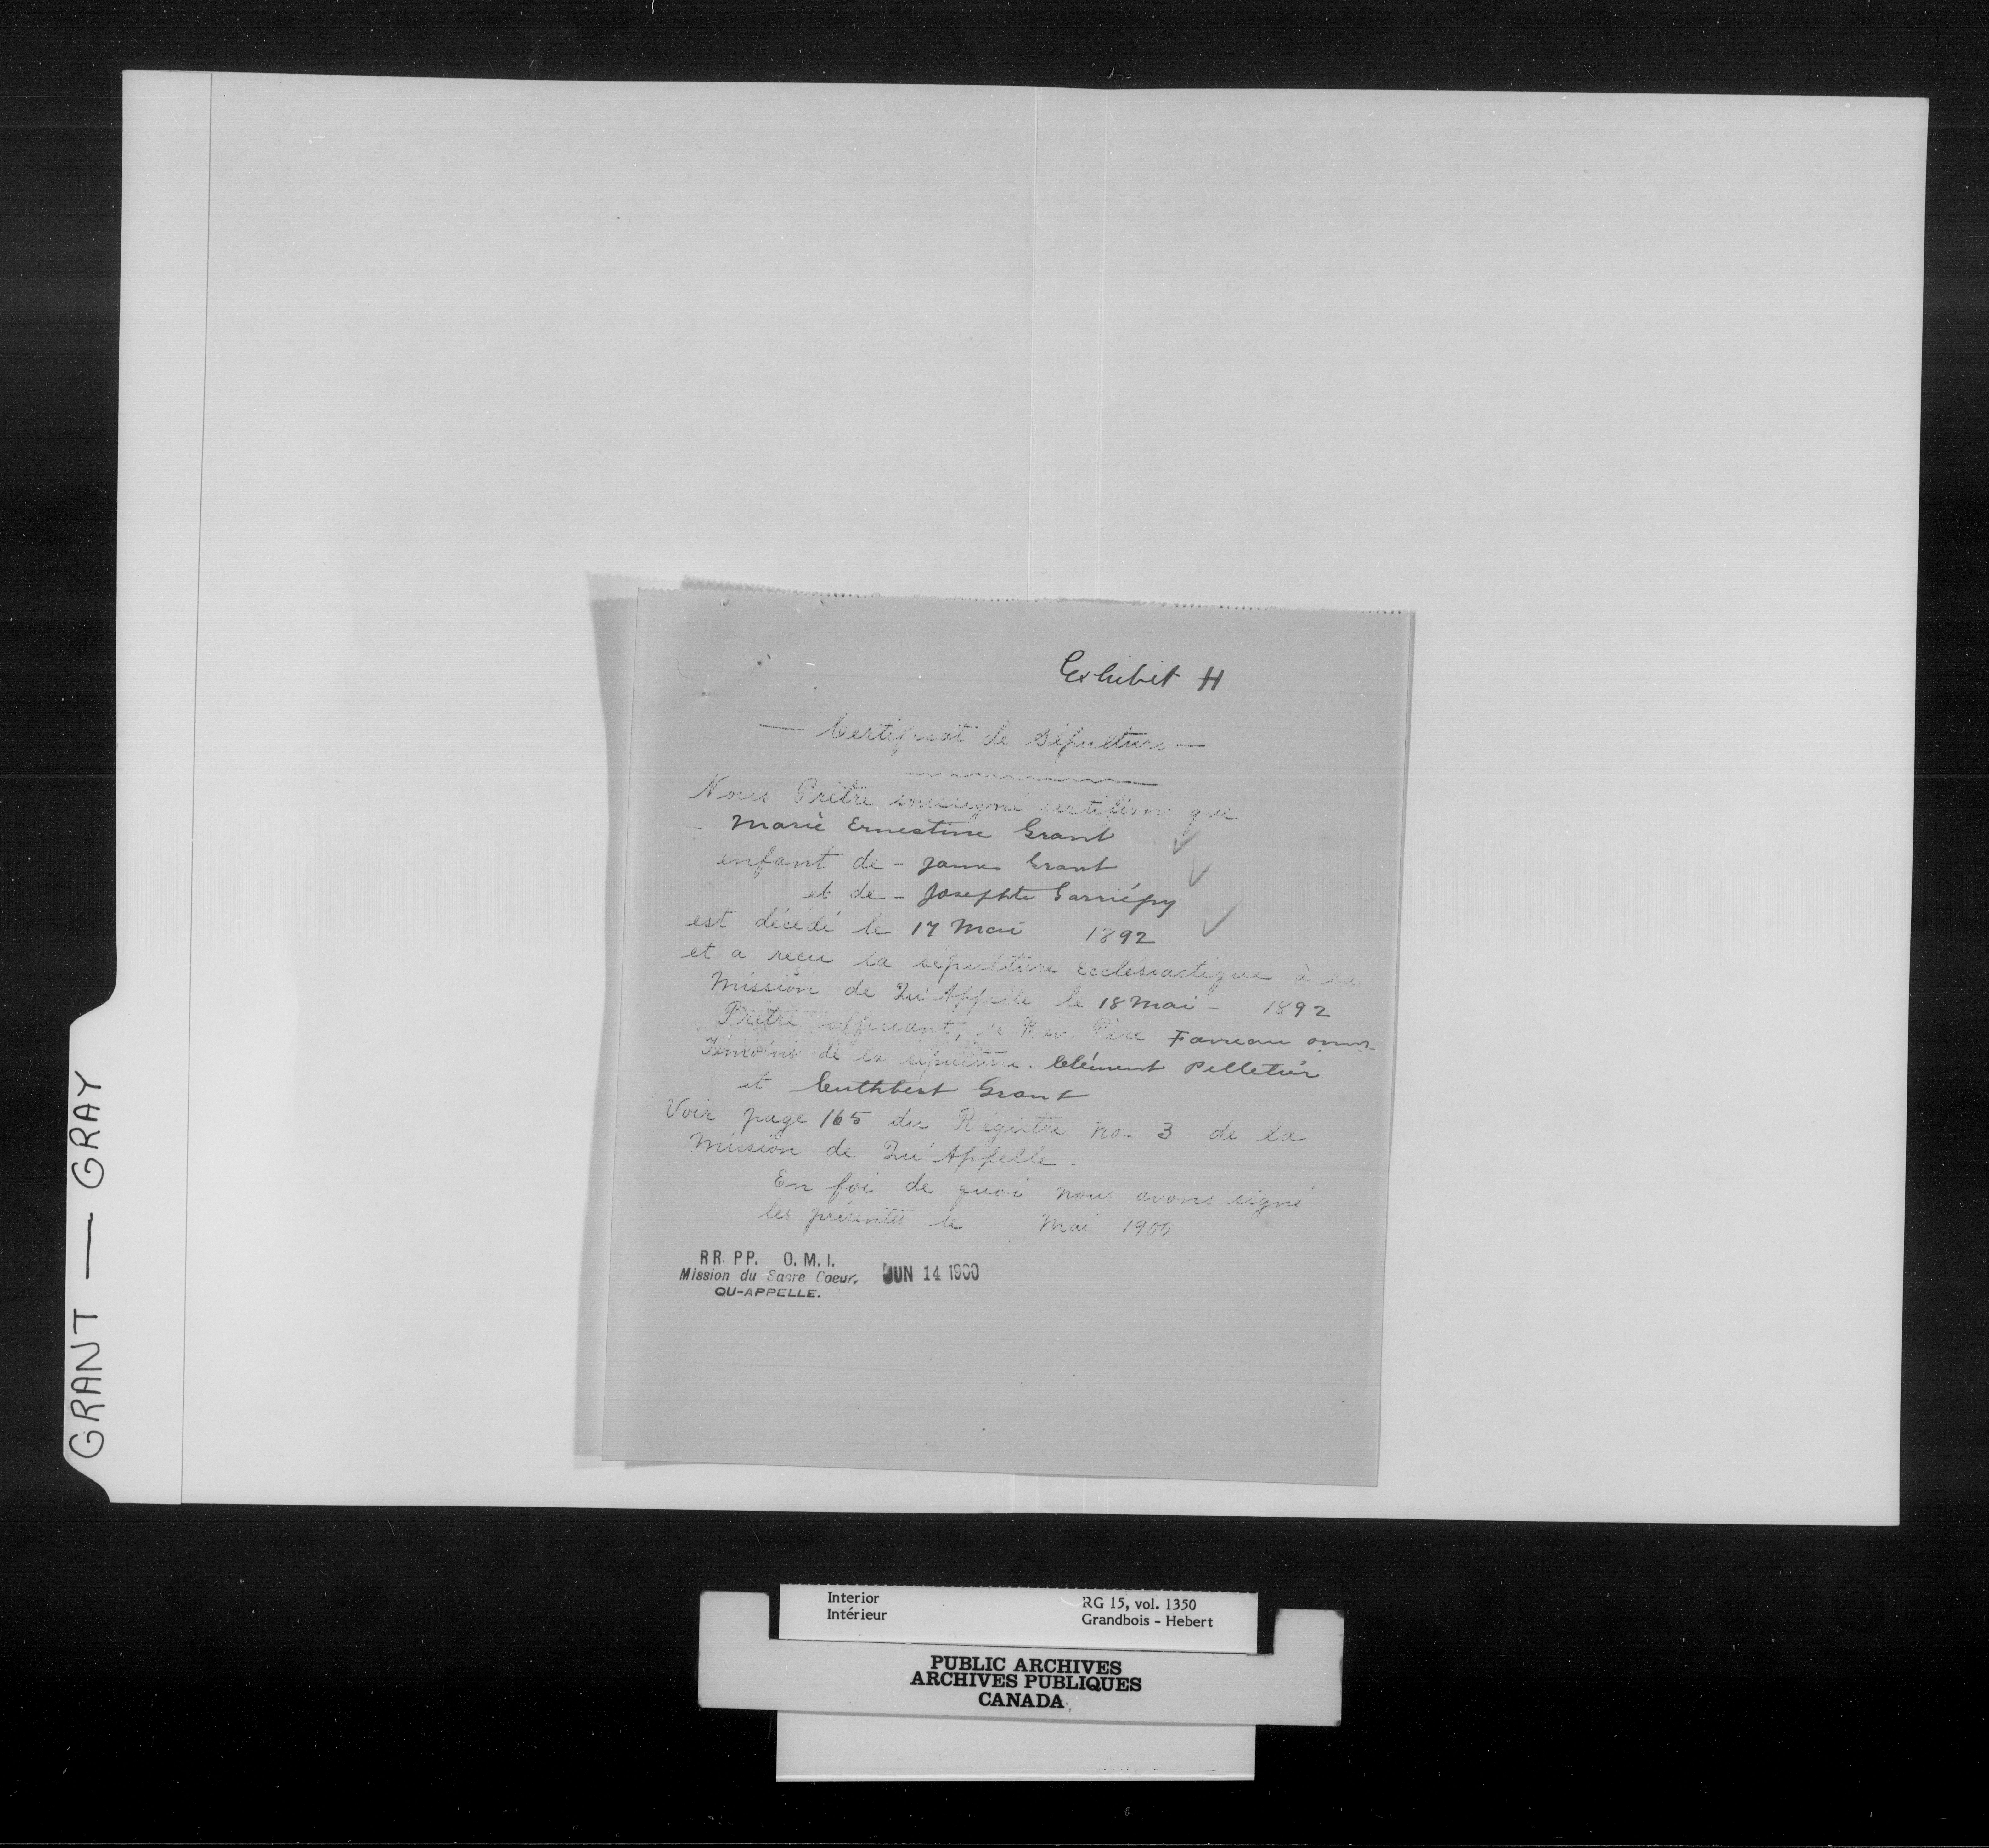 Exhibit H
— Certificat de Sépulture —
Nous Prêtre soussigné certifions que
- Marie Ernestine Grant
enfant de - James Grant
et de - Josephte Garriépy
est décédé le 17 Mai 1892
et a reçu la sépulture ecclésiastique, à la
Mission de Qu'Appelle le 18 Mai - 1892
Prêtre officiant, le Rev. Père Favreau o.m.i.
Témoins de la sépulture. Clément Pelletier
et Cuthbert Grant
Voir page 165 du Régistre No. 3 de la
Mission de Qu'Appelle.
En foi de quoi nous avons signé
les présentes le Mai 1900
RR. PP. O. M. I.
Mission du Sacre Coeur,
QU-APPELLE.
JUN 14 1900
GRANT — GRAY
Interior
Intérieur
RG 15, vol. 1350
Grandbois - Hebert
PUBLIC ARCHIVES
ARCHIVES PUBLIQUES
CANADA